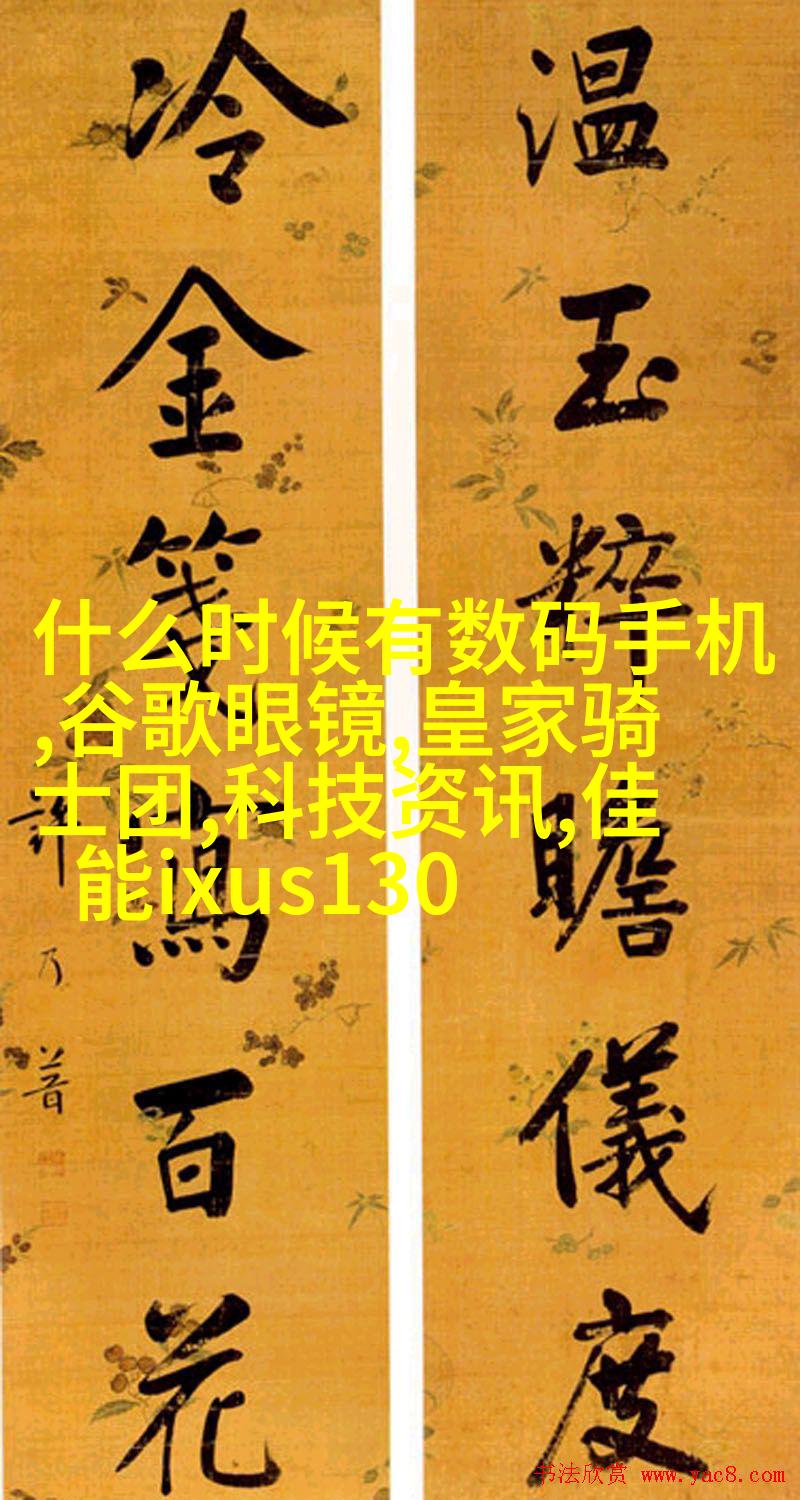 温玉粹瞻儀度
冷金箋寫百花
許乃普
什么时候有数码手机
,谷歌眼镜,皇家骑
士团,科技资讯,佳
能ixus130
书法欣赏 www.yac8.com